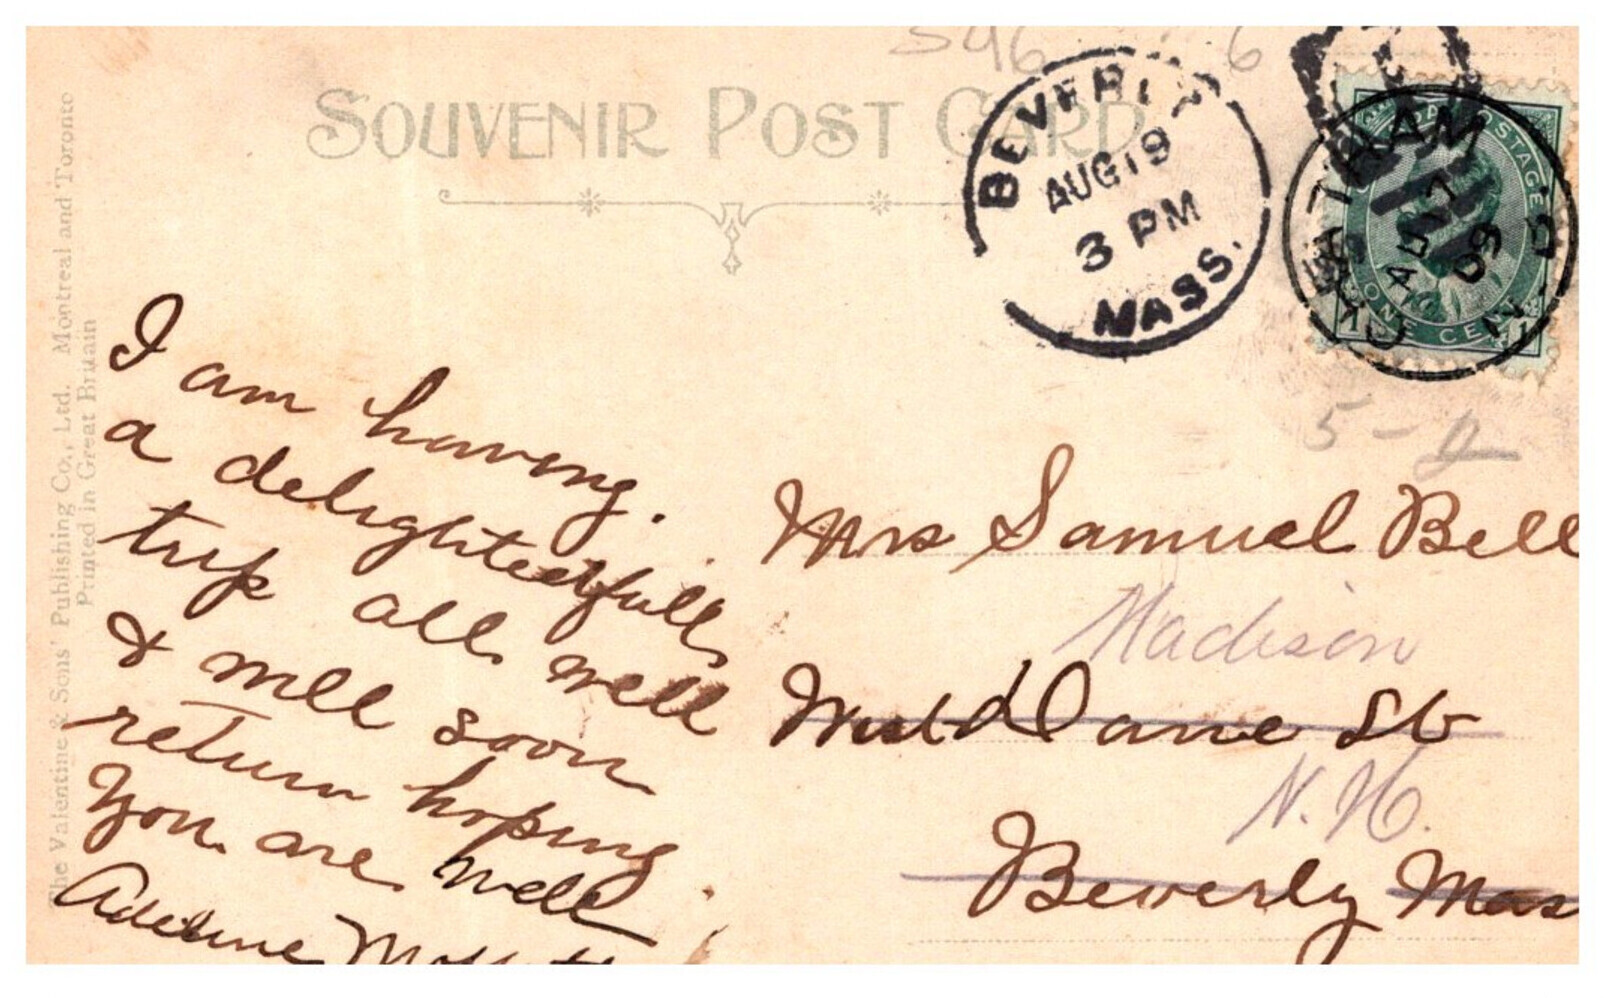 546 6
SOUVENIR POST CARD
BEVERLY
AUG 19
3 PM
MASS.
AM
AU 17
09
N.B.
CANADA POSTAGE
ONE CENT
1 1
The Valentine & Sons' Publishing Co., Ltd. Montreal and Toronto
Printed in Great Britain
I am having.
a delightedfull
trip all well
& will soon
return hoping
You are well
Adeline
5 -
Mrs Samuel Bell
Madison
Dane St
N. H.
Beverly Mass